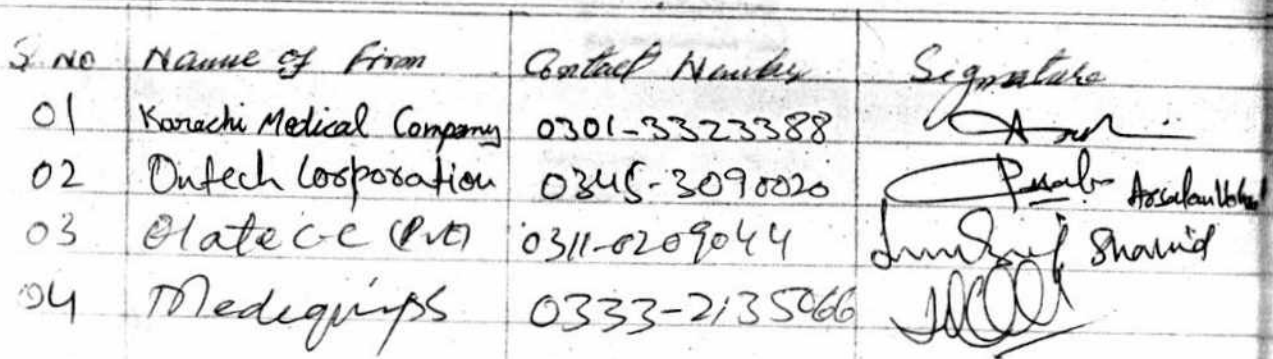 S. No Name of Firm Contact Number Signature
01 Karachi Medical Company 0301-3323388
02 Ontech Corporation 0345-3090020 Arsalan
03 (Pvt) 0311-0209044 Shahid
04 Mediquips 0333-2135066